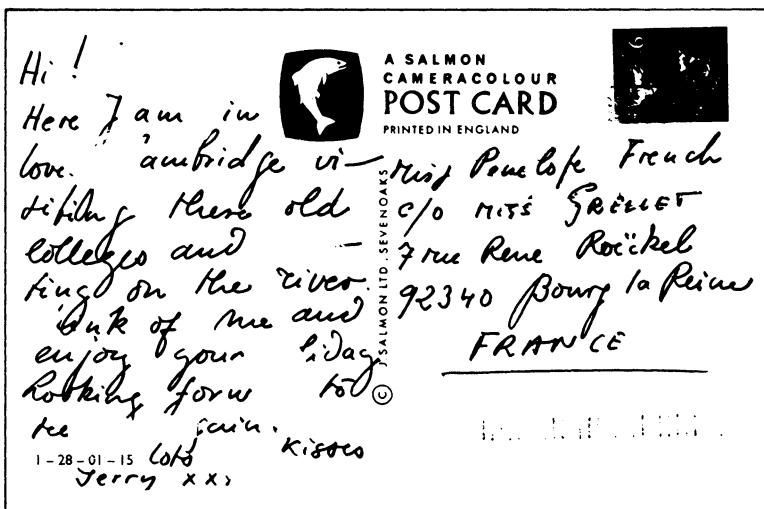 Hi !
Here I am in
love. 'ambridge vi-
siting these old
colleges and -
ting on the river.
'ink of me and
enjoy your 'liday
Looking forw to
see 'gain.
Lots Kisses
Jerry xxx
1-28-01-15
A SALMON
CAMERACOLOUR
POST CARD
PRINTED IN ENGLAND
© J. SALMON LTD. SEVENOAKS
Miss Penelope French
c/o MISS GRELLET
7 rue René Roëckel
92340 Bourg la Reine
FRANCE